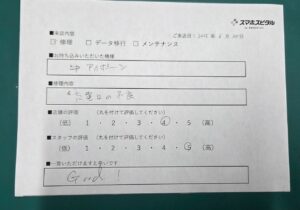 スマホスピタル
■来店内容
ご来店日:
□ 修理 □ データ移行 □ メンテナンス
■お持ち込みいただいた機種
アイフォーン
■修理内容
充電口の不良
■店舗の評価 (丸を付けて評価してください)
(低) 1 ・ 2 ・ 3 ・ 4 ・ 5 (高)
■スタッフの評価 (丸を付けて評価してください)
(低) 1 ・ 2 ・ 3 ・ 4 ・ 5 (高)
■一言いただけますと幸いです
Good!